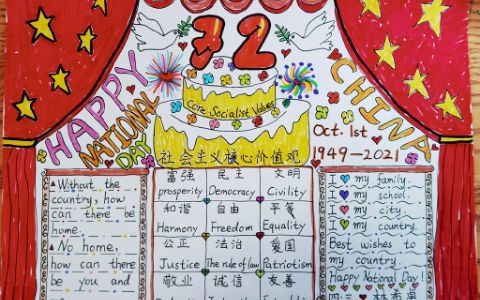 72
HAPPY
NATIONAL
DAY
CHINA
Core Socialist Values
Oct. 1st
1949-2021
社会主义核心价值观
Without the
country, how
can there be
home.
No home,
how can there
be you and
富强 民主 文明
prosperity Democracy Civility
和谐 自由 平等
Harmony Freedom Equality
公正 法治 爱国
Justice The rule of law Patriotism
敬业 诚信 友善
I my family.
I my school.
I my city.
I my country.
Best wishes to
my country.
Happy National Day!